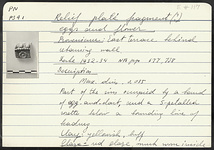 PN
P391
Relief plate fragment(?)
eggs and flower
Provenience: East terrace behind
retaining wall
Date 1952-54 NB pp 677, 758
Description:
Max. dim. 2.055
Part of the rim occupied by a band
of egg-and-dart, and a 5-petalled
rosette below a bounding line of
beading
Clay: yellowish, buff
Glaze: red gloss much worn inside